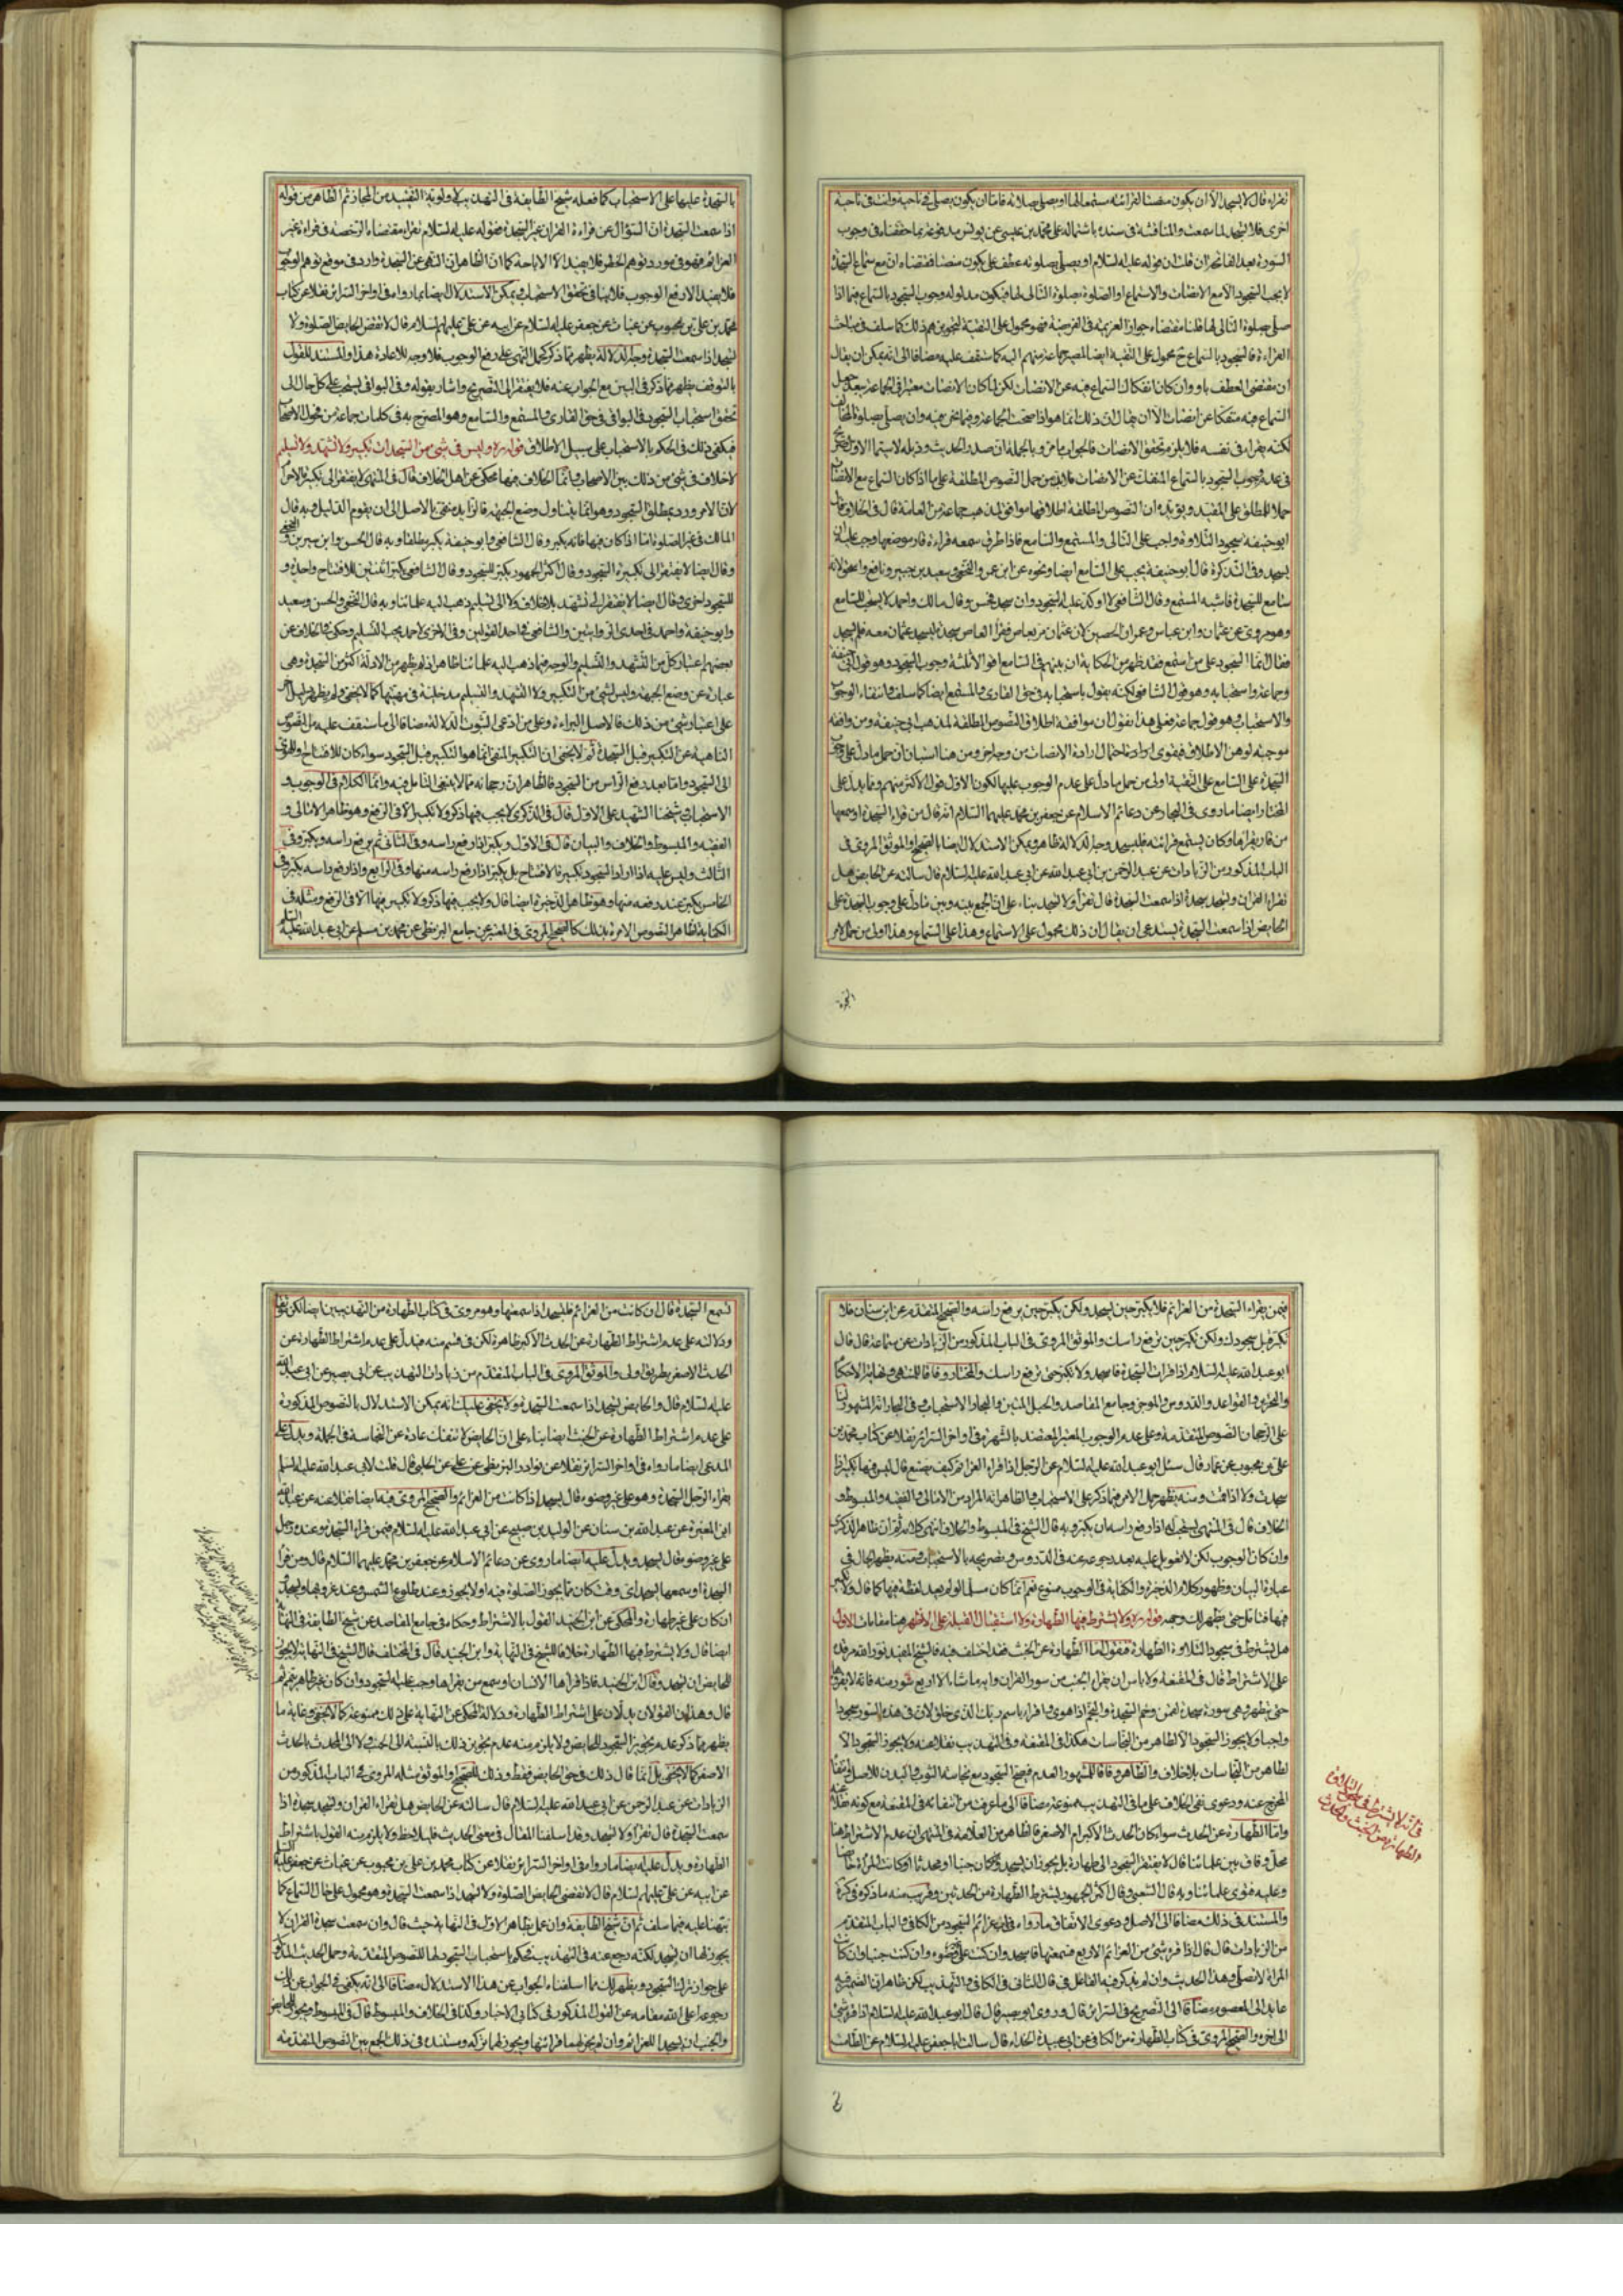 تقرء قال لا يسجد الا ان يكون منصتا لقرائته مستمعا لها او يصلي بصلاته فاما ان يكون يصلي في ناحية وانت في ناحية
اخرى فلا تسجد لما سمعت والمناقشة في سنده باشتماله على محمد بن عيسى عن يونس مدفوعة بما حققناه في وجوب
السورة بعد الفاتحة ان قلت ان قوله عليه السلام او يصلي بصلوته عطف على يكون منصتا فمقتضاه ان مع سماع السجدة
لا يجب السجود الا مع الانصات والاستماع او الصلوة بصلوة التالي لها فيكون مدلوله وجوب السجود بالسماع فيما اذا
صلى بصلوة التالي لها قلنا مقتضاه جواز العزيمة في الفريضة فهو محمول على التقية لتجويزهم ذلك كما سلف في مباحث
القراءة فالسجود بالسماع ح محمول على التقية ايضا لمصير جماعة منهم اليه كما ستقف عليه مضافا الى انه يمكن ان يقال
ان مقتضى العطف باو وان كان انفكاك السماع فيه عن الانصات لكن لما كان الانصات معتبرا في الجماعة يبعد جعل
السماع فيه منفكا عن انصات الا ان يقال ان ذلك انما هو اذا صحت الجماعة
لكنه يقرء في نفسه فلا يلزم تحقق الانصات فالجواب ما مر وبالجملة ان صدر الحديث وذيله لا سيما الاول صريح
في عدم وجوب السجود بالسماع المنفك عن الانصات فلابد من حمل النصوص المطلقة على ما اذا كان السماع مع الانصات
حملا للمطلق على المقيد ويؤيده ان النصوص المطلقة اطلاقها موافق لمذهب جماعة من العامة قال في الخلاف قال
ابو حنيفة سجود التلاوة واجب على التالي والمستمع والسامع
يسجد وفي التذكرة قال ابو حنيفة يجب على السامع ايضا ونحوه عن ابن عمر والنخعي وسعيد بن جبير ونافع واسحق لانه
سامع للسجدة فاشبه المستمع وقال الشافعي لا اؤكد عليه السجود وان سجد فحسن وقال مالك واحمد لا يستحب للسامع
وهو مروي عن عثمان وابن عباس وعمران بن الحصين لان عثمان مر بقاص فقرأ القاص سجدة ليسجد عثمان معه فلم يسجد
فقال انما السجود على من استمع فقد ظهر من الحكاية ان بينهم في السامع اقوالا ثلثة وجوب السجود وهو قول ابي حنيفة
وجماعة واستحبابه وهو قول الشافعي لكنه يقول باستحبابه في حق القاري والمستمع ايضا كما سلف وانتفاء الوجوب
والاستحباب وهو قول جماعة فعلى هذا نقول ان موافقة اطلاق النصوص المطلقة لمذهب ابي حنيفة ومن وافقه
موجبة لوهن الاطلاق فيقوى ارادة احتمال ارادة الانصات من وجه اخر ومن هنا استبان ان حمل ما دل على وجوب
السجدة على السامع على التقية اولى من حمل ما دل على عدم الوجوب عليها لكون الاول قول الاكثر منهم ومما يدل على
المختار ايضا ما روي في البحار عن دعائم الاسلام عن جعفر بن محمد عليهما السلام انه قال من قرء السجدة او سمعها
من قار يقرءها وكان يستمع قرائته فليسجد وجه الدلالة ظاهر ويمكن الاستدلال ايضا بالصحيح او الموثق المروي في
الباب المذكور من الزيادات عن عبد الرحمن بن ابي عبد الله عن ابي عبد الله عليه السلام قال سالته عن الحايض هل
تقرء القران وتسجد سجدة اذا سمعت السجدة قال تقرأ ولا تسجد بناء على ان الجمع بينه وبين ما دل على وجوب السجدة على
الحايض اذا سمعت السجدة يستدعي ان يقال ان ذلك محمول على الاستماع وهذا على السماع وهذا اولى من حمل الامر
السجدة
بالسجدة عليها على الاستحباب كما فعله شيخ الطايفة في التهذيب لاولوية التقييد من المجاز ثم الظاهر من قوله
اذا سمعت السجدة ان السؤال عن قراءة القران عبر السجدة فقوله عليه السلام تقرأ مقتضاه الرخصة في قراءة غير
العزائم فهو في مورد توهم الحظر فلا يفيد الا الاباحة كما ان الظاهر ان النهي عن السجدة وارد في موضع توهم الوجوب
فلا يفيد الا رفع الوجوب فلا ينافي تحقق الاستحباب ويمكن الاستدلال ايضا بما رواه في اواخر السرائر نقلا عن كتاب
محمد بن علي بن محبوب عن غياث عن جعفر عليه السلام عن ابيه عن علي عليهم السلام قال لا تقضي الحايض الصلوة ولا
تسجد اذا سمعت السجدة وجه الدلالة يظهر مما ذكر كحمل النهي على رفع الوجوب فلا وجه للاعادة هذا والمستند للقول
بالتوقف يظهر مما ذكر في البين مع الجواب عنه فلا يفتقر الى التصريح واشار بقوله وفي البواقي يستحب على كل حال الى
تحقق استحباب السجود في البواقي في حق القاري والمستمع والسامع وهو المصرح به في كلمات جماعة من فحول الاصحاب
فيكفي ذلك في الحكم بالاستحباب على سبيل الاطلاق قوله ره وليس في شئ من السجدات تكبير ولا تشهد ولا تسليم
لا خلاف في شئ من ذلك بين الاصحاب وانما الخلاف فيها محكي عن اهل الخلاف قال في المنتهى لا يفتقر الى تكبيرة الاحرام
لان الامر ورد بمطلق السجود وهو انما يتناول وضع الجبهة فالزايد منفي بالاصل الى ان يقوم الدليل وبه قال
المالك في غير الصلوة اما اذا كان فيها فانه يكبر وقال الشافعي وابو حنيفة يكبر مطلقا وبه قال الحسن وابن سيرين والنخعي
وقال ايضا لا يفتقر الى تكبيرة السجود وقال اكثر الجمهور يكبر للسجود وقال الشافعي يكبر اثنتين للافتتاح واحدة و
للسجود اخرى وقال ايضا لا يفتقر الى تشهد بلا خلاف ولا الى تسليم ذهب اليه علمائنا وبه قال النخعي والحسن وسعيد
وابو حنيفة واحمد في احدى الروايتين والشافعي في احد القولين وفي الاخرى لاحمد يجب التسليم وحكي في الخلاف عن
بعضهم اعتبار كل من التشهد والتسليم والوجه فيما ذهب اليه علمائنا ظاهر اذ لم يظهر من الادلة اكثر من السجدة وهي
عبارة عن وضع الجبهة وليس لشئ من التكبير ولا التشهد والتسليم مدخلية في مهيتها كما لا يخفى ولم يظهر دليل اخر
على اعتبار شئ من ذلك فالاصل البراءة وعلى من ادعى الثبوت الدلالة مضافا الى ما ستقف عليه من النصوص
الناهية عن التكبير قبل السجدة ثم لا يخفى ان التكبير المنفي انما هو التكبير قبل السجود سواء كان للافتتاح وللهوي
الى السجود واما بعد رفع الراس من السجود فالظاهر ان رجحانه مما لا ينبغي التامل فيه وانما الكلام في الوجوب و
الاستحباب وشيخنا الشهيد على الاول قال في الذكرى لا يجب فيها ذكر ولا تكبير الا في الرفع وهو ظاهر الامالي و
الفقيه والمبسوط والخلاف والبيان قال في الاول ويكبر اذا رفع راسه وفي الثاني ثم يرفع راسه ويكبر وفي
الثالث وليس عليه اذا اراد السجود تكبيرة الافتتاح بل يكبر اذا رفع راسه منها وفي الرابع واذا رفع راسه يكبر وفي
الخامس يكبر عند رفعه منها وهو ظاهر الذخيرة ايضا قال ولا يجب فيها ذكر ولا تكبير فيها الا في الرفع ومثله في
الكفاية لظاهر النصوص الامرة بذلك كالصحيح المروي في المعتبر عن جامع البزنطي عن محمد بن مسلم عن ابي عبد الله عليه السلام
فيمن يقرء السجدة من العزائم فلا يكبر حين يسجد ولكن يكبر حين يرفع راسه والصحيح المتقدم عن ابن سنان فلا
تكبر قبل سجودك ولكن تكبر حين ترفع راسك والموثق المروي في الباب المذكور من الزيادات عن سماعة قال قال
ابو عبد الله عليه السلام اذا قرات السجدة فاسجد ولا تكبر حتى ترفع راسك والمختار وفاقا للمنتهى ونهاية الاحكام
والتحرير والقواعد والدروس والموجز وجامع المقاصد والحبل المتين والبحار الاستحباب وفي البحار انه المشهور لنا
على الرجحان النصوص المتقدمة وعلى عدم الوجوب المعتبر المعتضد بالشهرة في اواخر السرائر نقلا عن كتاب محمد بن
علي بن محبوب عن عمار قال سئل ابو عبد الله عليه السلام عن الرجل اذا قرء العزائم كيف يصنع قال ليس فيها تكبير اذا
سجدت ولا اذا قمت ومنه يظهر حمل الامر فيما ذكر على الاستحباب والظاهر انه المراد من الامالي والفقيه والمبسوط و
الخلاف قال في المنتهى يستحب له اذا رفع راسه ان يكبر وبه قال الشيخ في المبسوط والخلاف انتهى كلامه اقول ان ظاهر الذكرى
وان كان الوجوب لكن لا تعويل عليه بعد رجوعه عنه في الدروس وتصريحه بالاستحباب ومنه يظهر الحال في
عبارة البيان وظهور كلام الذخيرة والكفاية في الوجوب ممنوع نعم انما كان مسلما لو لم يعد لفظة فيها كما قال ولا تكبير
فيها فتامل حتى يظهر لك وجهه قوله ره ولا يشترط فيها الطهارة ولا استقبال القبلة على الاظهر هنا مقامات الاول
هل يشترط في سجود التلاوة الطهارة فنقول اما الطهارة عن الخبث فقد اختلف فيه فالشيخ المفيد نور الله مرقده
على الاشتراط قال في المقنعة ولا باس ان يقرء الجنب من سور القران وايه ما شاء الا اربع سور منه فانه لا يقرؤها
حتى يطهر وهي سورة سجدة لقمن وحم السجدة والنجم اذا هوى واقرأ باسم ربك الذي خلق لان في هذه السور سجودا
واجبا ولا يجوز السجود الا لطاهر من النجاسات هكذا في المقنعة وفي التهذيب نقلا عنه ولا يجوز السجود الا
لطاهر من النجاسات بلا خلاف والظاهر وفاقا للمشهور العدم فيصح السجود مع نجاسة الثوب والبدن للاصل وانتفاء
المخرج عنه ودعوى نفي الخلاف على ما في التهذيب ممنوعة مضافا الى ما عرفت من انتفائه في المقنعة مع كونه نقلا عنه
واما الطهارة عن الحدث سواء كان الحدث الاكبر ام الاصغر فالظاهر من العلامة في المنتهى ان عدم الاشتراط هنا
محل وفاق بين علمائنا قال لا يفتقر السجود الى طهارة بل يجوز ان يسجد وان كان جنبا او محدثا او كانت المراة حايضا
وعليه فتوى علمائنا وبه قال الشعبي وقال اكثر الجمهور يشترط الطهارة من الحدثين وقريب منه ما ذكره في كرة
والمستند في ذلك مضافا الى الاصل ودعوى الاتفاق ما رواه في باب عزائم السجود من الكافي والباب المتقدم
من الزيادات قال قال اذا قرء شئ من العزائم الاربع فسمعتها فاسجد وان كنت على غير وضوء وان كنت جنبا وان كانت
المراة لا تصلي وهذا الحديث وان لم يذكر فيه الفاعل في قال الثاني في الكافي والتهذيب لكن ظاهر ان الضمير فيه
عايد الى المعصوم مضافا الى التصريح في السرائر قال وروى ابو بصير قال قال ابو عبد الله عليه السلام اذا قرء شئ
الى اخره والصحيح المروي في كتاب الطهارة من الكافي عن ابي عبيدة الحذاء قال سالت ابا جعفر عليه السلام عن الطامث
في انه لا يشترط في سجود التلاوة
الطهارة من الخبث والحدث
تسمع السجدة قال ان كانت من العزائم فلتسجد اذا سمعتها وهو مروي في كتاب الطهارة من التهذيب ايضا لكن موثقا
ودلالته على عدم اشتراط الطهارة عن الحدث الاكبر ظاهرة لكن في قسم منه فيدل على عدم اشتراط الطهارة عن
الحدث الاصغر بطريق اولى والموثق المروي في الباب المتقدم من زيادات التهذيب عن ابي بصير عن ابي عبد الله
عليه السلام قال والحايض تسجد اذا سمعت السجدة ولا يخفى عليك انه يمكن الاستدلال بالنصوص المذكورة
على عدم اشتراط الطهارة عن الخبث ايضا بناء على ان الحايض لا تنفك عادة عن النجاسة في الجملة ويدل على
المدعى ايضا ما رواه في اواخر السرائر نقلا عن نوادر البزنطي عن علي عن الحلبي قال قلت لابي عبد الله عليه السلم
يقرء الرجل السجدة وهو على غير وضوء قال يسجد اذا كانت من العزائم والصحيح المروي فيه ايضا نقلا عنه عن عبد الله
ابن المغيرة عن عبد الله بن سنان عن الوليد بن صبيح عن ابي عبد الله عليه السلام فيمن قرء السجدة وعنده رجل
على غير وضوء قال يسجد ويدل عليه ايضا ما روي عن دعائم الاسلام عن جعفر بن محمد عليهما السلام قال ومن قرأ
السجدة او سمعها يسجد اي وقت كان مما يجوز الصلوة فيه او لا يجوز وعند طلوع الشمس وعند غروبها ويسجد و
ان كان على غير طهارة والمحكي عن ابن الجنيد القول بالاشتراط وحكاه في جامع المقاصد عن شيخ الطايفة في النهاية
ايضا قال ولا يشترط فيها الطهارة خلافا للشيخ في النهاية وابن الجنيد قال في المختلف قال الشيخ في النهاية لا يجوز
للحايض ان تسجد وقال ابن الجنيد فاذا قرأها الانسان او سمع من يقرأها وجب عليه السجود وان كان غير طاهر تيمم ثم
قال وهذان القولان يدلان على اشتراط الطهارة ودلالة المحكي عن النهاية على ذلك ممنوعة كما لا يخفى وغاية ما
يظهر مما ذكر عدم تجويز السجود للحايض ولا يلزم منه عدم تجويز ذلك بالنسبة الى الجنب ولا الى المحدث بالحدث
الاصغر كما لا يخفى بل انما قال ذلك في حق الحايض فقط وذلك للصحيح والموثق مثله المروي في الباب المذكور من
الزيادات عن عبد الرحمن عن ابي عبد الله عليه السلام قال سالته عن الحايض هل تقرء القران وتسجد سجدة اذا
سمعت السجدة قال تقرأ ولا تسجد وقد اسلفنا المقال في معنى الحديث فليلاحظ ولا يلزم منه القول باشتراط
الطهارة ويدل عليه ايضا ما رواه في اواخر السرائر نقلا عن كتاب محمد بن علي بن محبوب عن غياث عن جعفر عليه السلم
عن ابيه عن علي عليهم السلام قال لا تقضي الحايض الصلوة ولا تسجد اذا سمعت السجدة وهو محمول على حال السماع كما
نبهنا عليه فيما سلف ثم ان شيخ الطايفة وان عمل بظاهر الاول في النهاية حيث قال وان سمعت سجدة القران لا
يجوز لها ان تسجد لكنه رجع عنه في التهذيب فحكم باستحباب السجود لها للنصوص المتقدمة وحمل الحديث المذكور
على جواز ترك السجود ويظهر لك مما اسلفناه الجواب عن هذا الاستدلال مضافا الى انه يكفي في الجواب عن ذلك
رجوعه اعلى الله مقامه عن القول المذكور في كتابي الاخبار وكذا في الخلاف والمبسوط قال في المبسوط ويجوز للحايض
والجنب ان يسجدا للعزائم وان لم يجز لهما قرائتها ويجوز لهما تركه ومستنده في ذلك الجمع بين النصوص المتقدمة